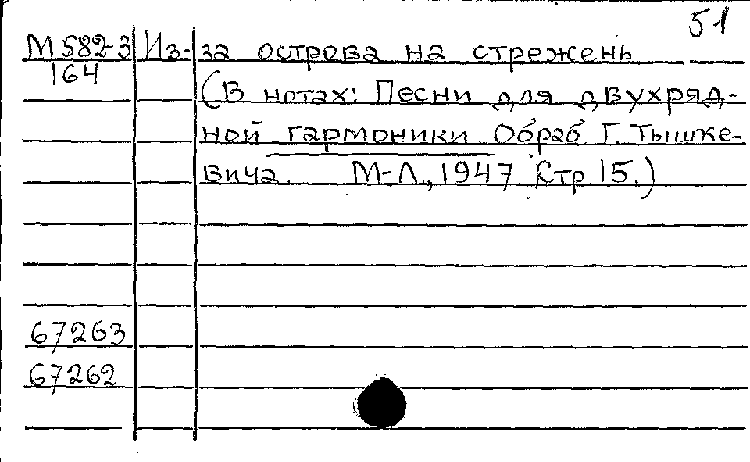 51
М582-3 Из-за острова на стрежень
164
(В нотах: Песни для двухряд-
ной гармоники Обраб Г. Тышке-
вича. М-Л, 1947 Стр 15.)
67263
67262